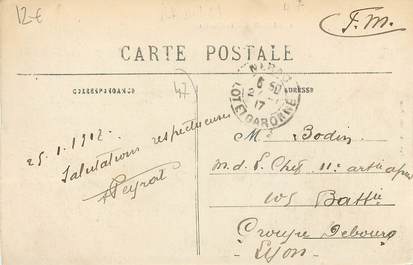 12 €
F.M.
CARTE POSTALE
CORRESPONDANCE
ADRESSE
47
6 30
17
LOT-ET-GARONNE
25.1.1917.
Salutations respectueuses
Peyrot
M. Bodin
m.d.L. Chef 11e artie à pied
105 Battie
Groupe Debourg
- Lyon -